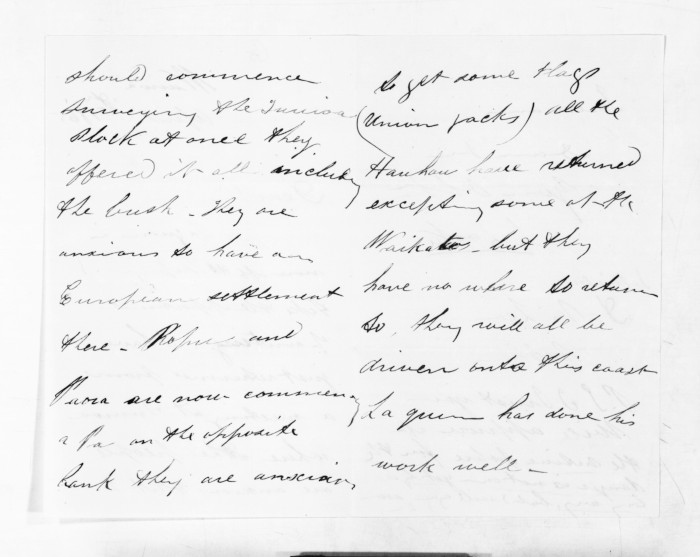 should commence
surveying the
Block at once they
offered it all including
the bush - They are
anxious to have an
European settlement
there - Ropu and
are now commencing
a Pa on the opposite
bank they are anxious
to get some flags
(Union Jacks) all the
Hauhau have returned
excepting some of the
Waikatos - but they
have no where to return
to, they will all be
driven onto this coast
has done his
work well -